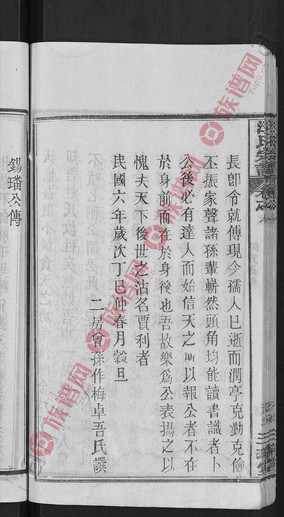 長卽令就傅現今孺人已逝而潤亭克勤克儉
丕振家聲諸孫輩嶄然頭角均能讀書識者卜
公後必有達人而始信天之所以報公者不在
於身前而在於身後也吾故樂爲公表揚之以
愧夫天下後世之沽名賈利者
民國六年歲次丁巳仲春月穀旦
二房會孫作梅卓吾氏譔
錫璠公傳
族谱网